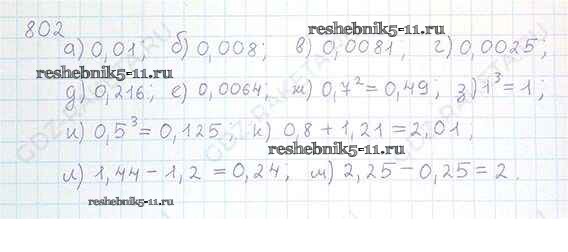 802
а) 0,01; б) 0,008; в) 0,0081; г) 0,0025;
д) 0,216; е) 0,0064; ж) 0,7² = 0,49; з) 1³ = 1;
и) 0,5³ = 0,125; к) 0,8 + 1,21 = 2,01;
л) 1,44 - 1,2 = 0,24; м) 2,25 - 0,25 = 2.
reshebnik5-11.ru
reshebnik5-11.ru
reshebnik5-11.ru
reshebnik5-11.ru
GDZ-RAKETA.RU